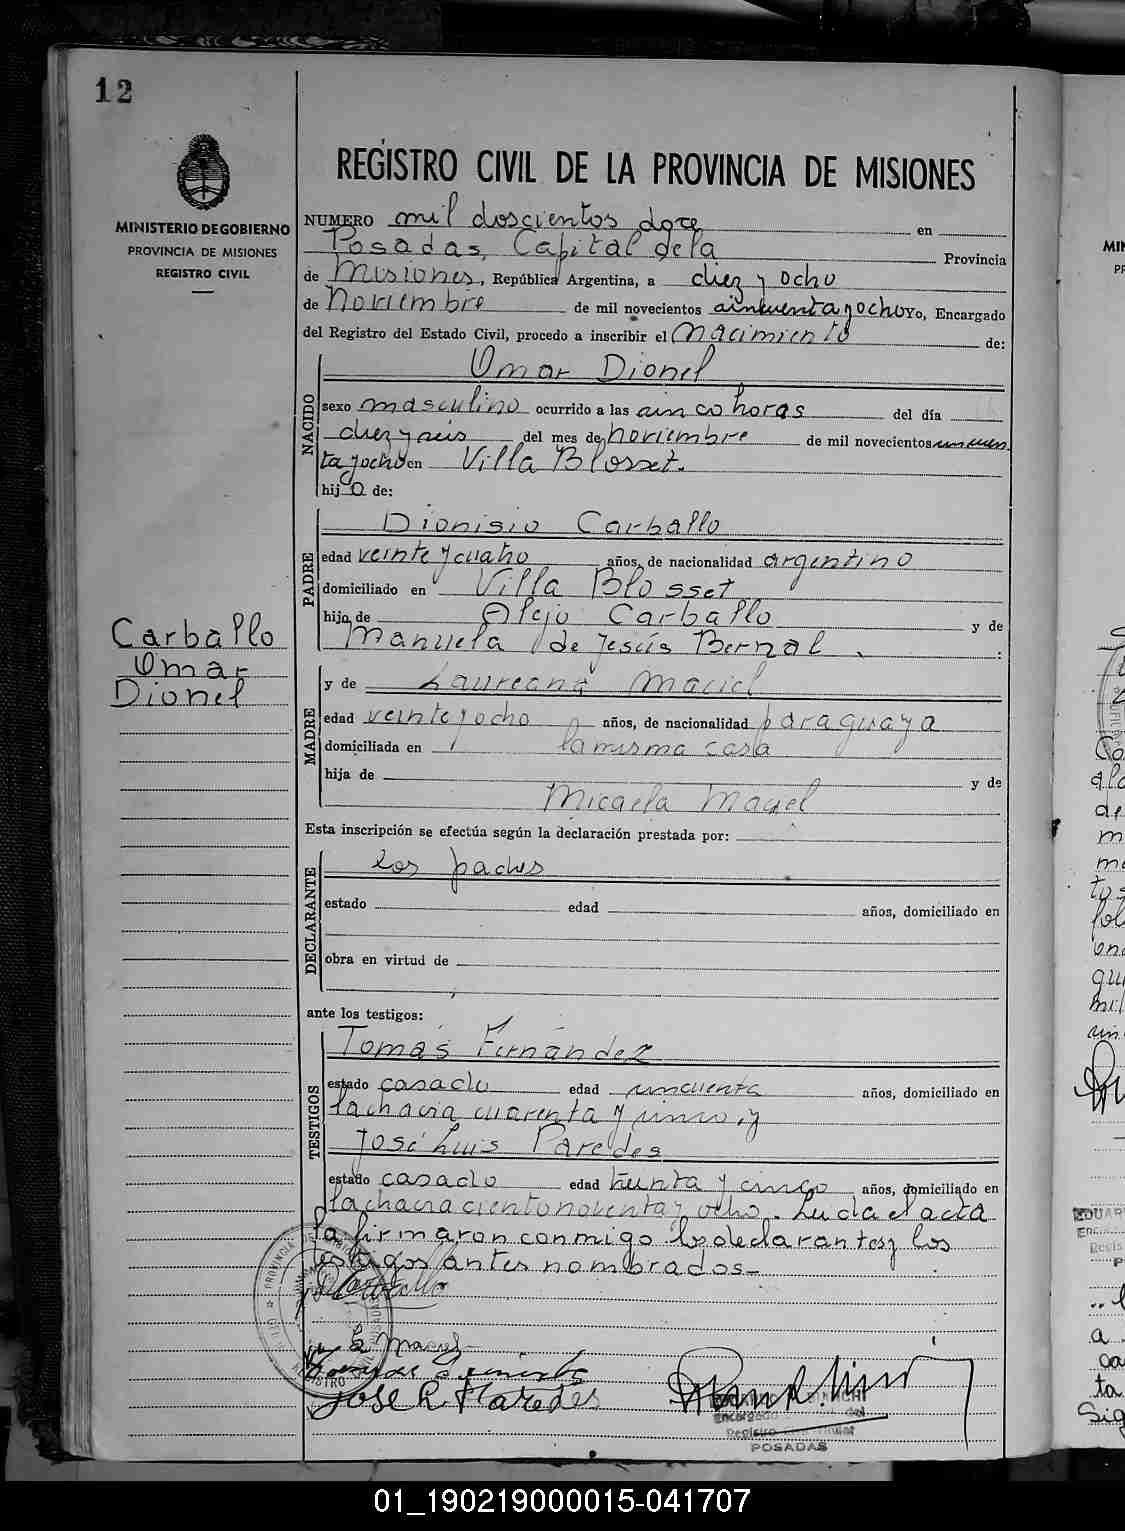 12
MINISTERIO DE GOBIERNO
PROVINCIA DE MISIONES
REGISTRO CIVIL
Carballo
Omar
Dionel
REGISTRO CIVIL DE LA PROVINCIA DE MISIONES
NUMERO mil doscientos doce en
Posadas, Capital de la Provincia
de Misiones, República Argentina, a diez y ocho
de Noviembre de mil novecientos cincuenta y ocho Yo, Encargado
del Registro del Estado Civil, procedo a inscribir el Nacimiento de:
NACIDO
Omar Dionel
sexo masculino ocurrido a las cinco horas del día
diez y seis del mes de Noviembre de mil novecientos cincuen
ta y ocho en Villa Blosset.
hijo de:
PADRE
Dionisio Carballo
edad veinte y cuatro años, de nacionalidad argentino
domiciliado en Villa Blosset
hijo de Alejo Carballo y de
Manuela de Jesús Bernal :
MADRE
y de Laureana Maciel
edad veinte y ocho años, de nacionalidad paraguaya
domiciliada en la misma casa
hija de y de
Micaela Maciel
Esta inscripción se efectúa según la declaración prestada por:
DECLARANTE
los padres
estado edad años, domiciliado en
obra en virtud de
ante los testigos:
TESTIGOS
Tomás Fernández
estado casado edad cincuenta años, domiciliado en
la chacra cuarenta y cinco, y
José Luis Paredes
estado casado edad treinta y cinco años, domiciliado en
la chacra ciento noventa y ocho. Leida el acta
la firmaron conmigo los declarantes y los
testigos antes nombrados.-
D Carballo
L Maciel
Jose L. Paredes
Encargado del
Registro
POSADAS
01_190219000015-041707